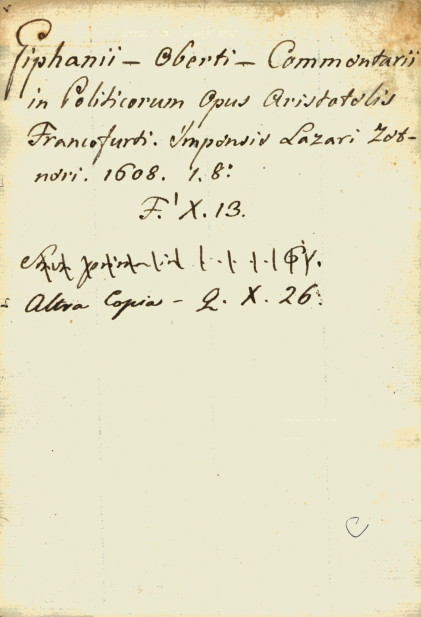 Giphanii - Oberti - Commentarii
in Politicorum Opus Aristotelis
Francofurti. Impensis Lazari Zet-
neri. 1608. 1. 8:
F.' X. 13.
Altra Copia - Q. X. 26.
C